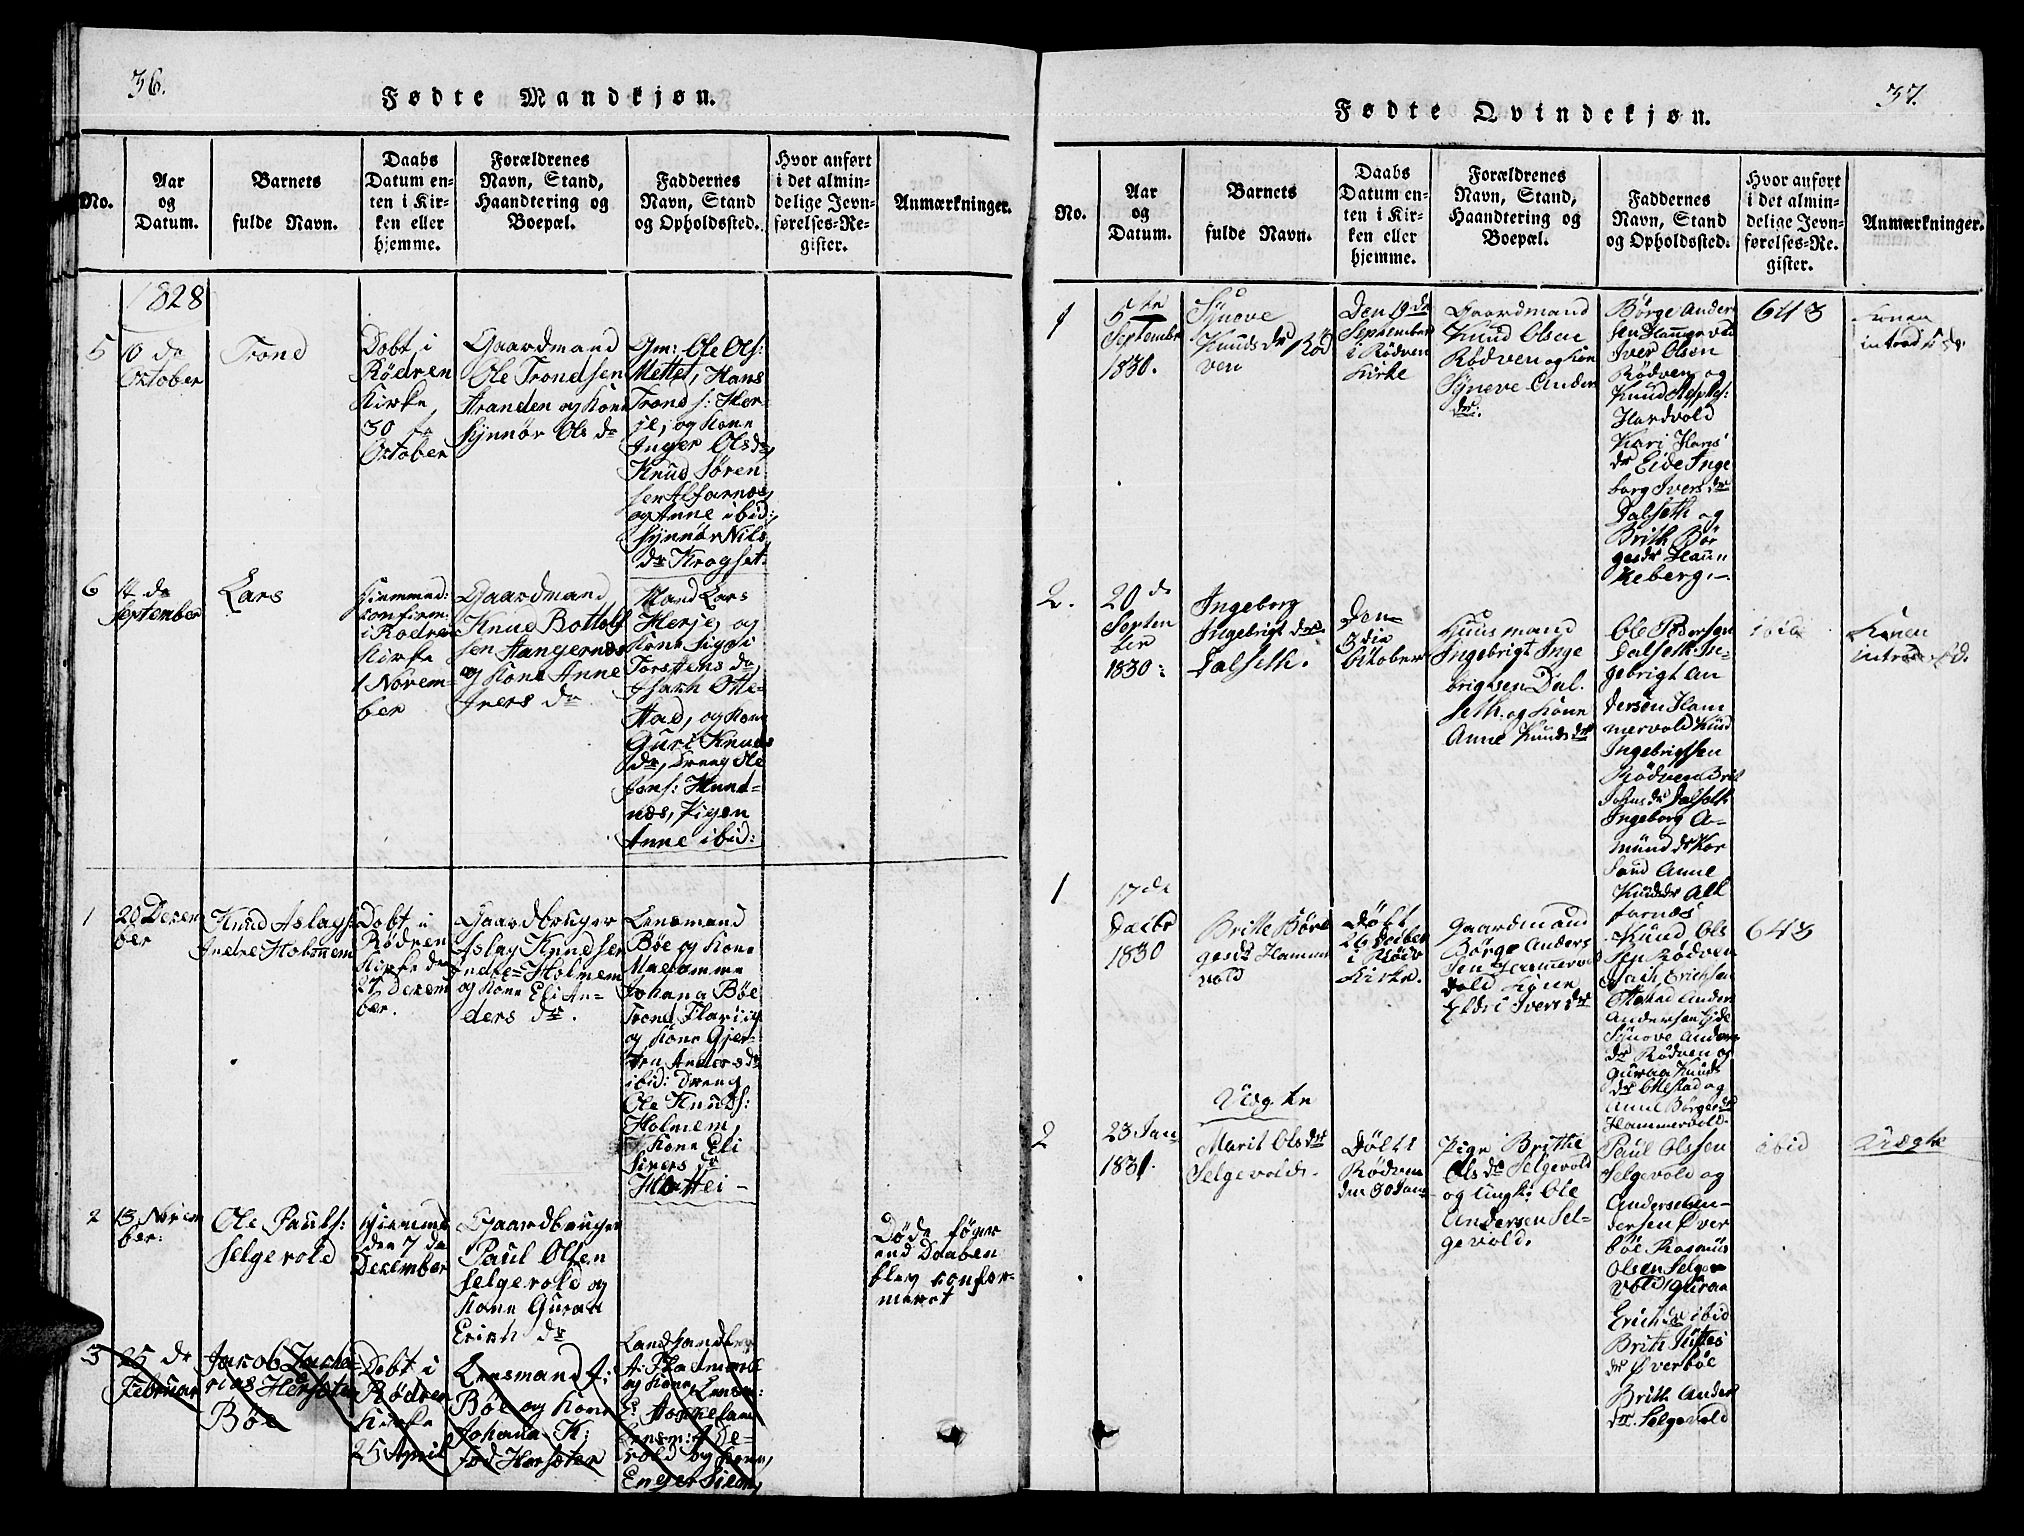 36.
Fødte Mandkjøn.
No.
Aar
og
Datum.
Barnets
fulde Navn.
Daabs
Datum en-
ten i Kir-
ken eller
hjemme.
Forældrenes
Navn, Stand,
Haandtering og
Boepæl.
Faddernes
Navn, Stand
og Opholdssted.
Hvor anført
i det almin-
delige Jevn-
førelses-Re-
gister.
Anmærkninger.
1828
5
10 de
October
Trond
Døbt i
Rødven
Kirke
30 te
October
Gaardmand
Ole Trondsen
Stranden og Kone
Synnør Ols dr
Gm: Ole Ols:
Mettet, Hans
Trond s: Her-
je, og Kone
Inger Olsdr,
Knud Søren
sen Alfarnæs,
og Anne ibid:
Synnør Nils
dr Krogset.
6
September
Lars
Hjemmed:
Confirm:
i Rødven
Kirke
1 Novem-
ber
Gaardmand
Knud Bottolf
sen Hangernes
og Kone Anne
Ivers dr
Mand Lars
Herje, og
Kone Sigri
Torstens dr,
Otte-
stad, og Kone
Guri Knuds
dr, Dreng Ole
Jons: Hund-
næs, Pigen
Anne ibid:
1
20 Decem
ber
Knud Aslags:
Indre Holmem
Døbt i
Rødven
Kirke de
27 Decem
ber.
Gaardbruger
Aslag Knudsen
Indre Holmem
og Kone Eli An-
ders dr.
Lensmand
Bøe og Kone
Madamme
Johana Bøe
Trond
og Kone Gjer-
Anders dr
ibid: Dreng
Ole Knuds:
Holmem,
Kone Eli
Sivers dr
Hattei –
2
13 Novem
ber:
Ole Pauls:
Selgevold
Hjemme
den 7 de
December
Gaardbruger
Paul Olsen
Selgevold og
Kone Guraa
Erich dr
Døde føger
end Daaben
blev confor-
meret
3
25 de
Februar
Jacob Zacha-
rias Hersæter
Bøe
Døbt i
Rødven
Kirke
25 April
Lensmand J:
Bøe og Kone
Johana K:
fød Hersæter
Landhandler
og Kone, Lensm:
Lensm:
vold og Kone,
37.
Fødte Qvindekjøn.
No.
Aar
og
Datum.
Barnets
fulde Navn.
Daabs
Datum en-
ten i Kir-
ken eller
hjemme.
Forældrenes
Navn, Stand,
Haandtering og
Boepæl.
Faddernes
Navn, Stand
og Opholdssted.
Hvor anført
i det almin-
delige Jevn-
førelses-Re-
gister.
Anmærkninger.
1
5 te
September
1830.
Synove
Knuds dr Rød
ven
Den 19 de
September
i Rødven
Kirke
Gaardmand
Knud Olsen
Rødven og Kone
Syneve Anders
dr:
Børge Anders
sen Hammervold
Iver Olsen
Rødven og
Knud
Hardvold
Kari Hans
dr Eide Inge
borg Ivers dr
Dalseth og
Brith Bør
gesdr Haun
keberg. –
648
2.
20 de
Septem
ber
1830.
Ingeborg
Ingebrigt dr
Dalseth.
Den
3 die
October
Huusmand
Ingebrigt Inge
brigtsen Dal
seth og Kone
Anne Knuds dr
Ole Pedersen
Dalseth In-
gebrigt An
dersen Ham
mervold Knud
Ingebrigtsen
Rødven Brit
Johns dr Dalseth
Ingeborg A-
mund dr Kor
sand Anne
Knudsdr Alf
farnæs
ibid
Konen
1
17 de
Decbr
1830
Britte Bør
gesdr Hammer
vold
Døbt
26 Decber
i Rødv
Kirke.
Gaardmand
Børge Anders
sen Hammervold
Kone
Eldri Ivers dr
Knud Ols
sen Rødven
Erichsen
Ottestad Anders
Andersen Eide
Synove Anders
dr Rødven og
Guraa Knuds
dr Ottestad og
Anne Børgesdr
Hammervold.
648
Uægte
2
23 Jan
1831.
Marit Ols dr
Selgevold.
Døbt i
Rødven
den 30 Jan
Pige Brithe
Ols dr Selgevold
og Ungk: Ole
Andersen Sel-
gevold.
Paul Olssen
Selgevold og
Anders An-
dersen Øver
bøe Rasmus
Olsen Selge
vold Guraa
Erichdr ibid
Brith
dr Øverbøe
Brith Anders
dr. Selgevold
ibid
Uægte